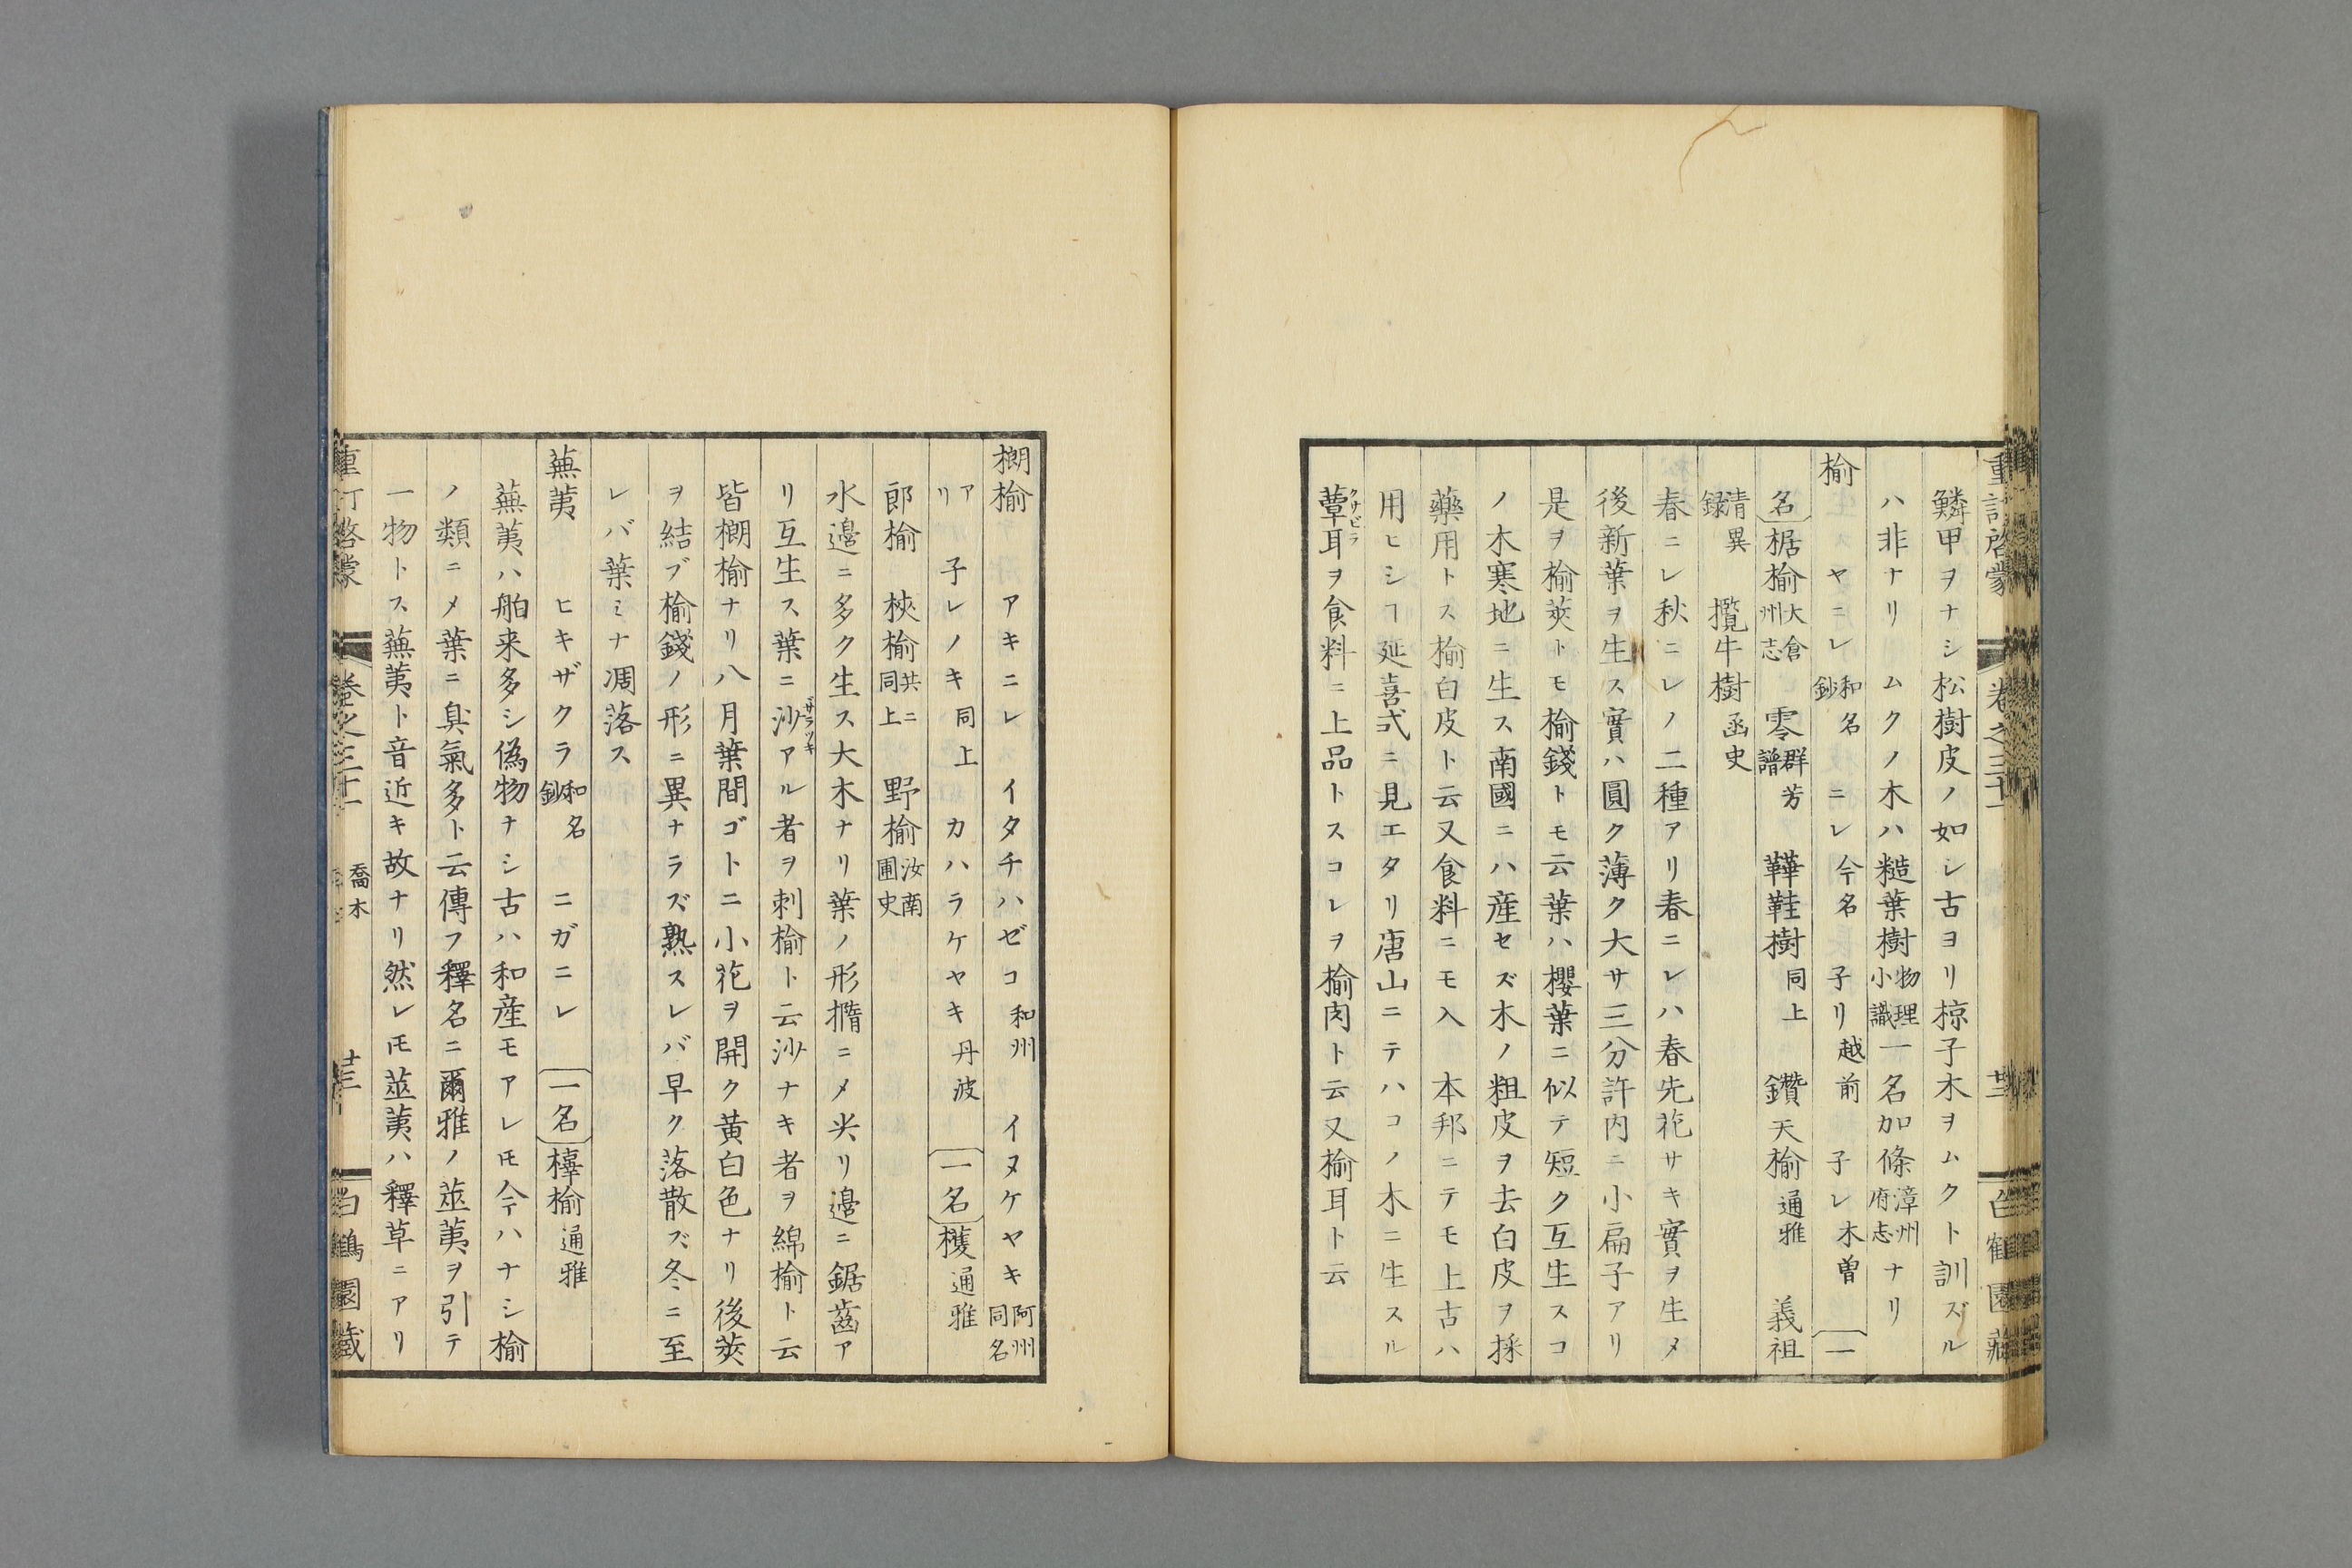 重訂啓蒙 卷之三十一 廿二 白鶴園藏
鱗甲ヲナシ松樹皮ノ如シ古ヨリ椋子木ヲムクト訓ズル
ハ非ナリムクノ木ハ糙葉樹物理小識一名加條漳州府志ナリ
榆 ヤニレ和名鈔 ニレ今名 子リ越前 子レ木曽 一
名 椐榆大倉州志 零群芳譜 鞾鞋樹同上 鑽天榆通雅 義祖
清異録 攬牛樹函史
春ニレ秋ニレノ二種アリ春ニレハ春先花サキ實ヲ生メ
後新葉ヲ生ス實ハ圓ク薄ク大サ三分許内ニ小扁子アリ
是ヲ榆莢トモ榆錢トモ云葉ハ櫻葉ニ似テ短ク互生スコ
ノ木寒地ニ生ス南國ニハ産セズ木ノ粗皮ヲ去白皮ヲ採
藥用トス榆白皮ト云又食料ニモ入 本邦ニテモ上古ハ
用ヒシヿ延喜式ニ見エタリ唐山ニテハコノ木ニ生スル
蕈クサビラ耳ヲ食料ニ上品トスコレヲ榆肉ト云又榆耳ト云
榔榆 アキニレ イタチハゼコ和州 イヌケヤキ阿州同名
アリ 子レノキ同上 カハラケヤキ丹波 一名 檴通雅
郎榆 梜榆共ニ同上 野榆汝南圃史
水邉ニ多ク生ス大木ナリ葉ノ形橢ニメ尖リ邉ニ鋸齒ア
リ互生ス葉ニ沙ザラツキアル者ヲ刺榆ト云沙ナキ者ヲ綿榆ト云
皆榔榆ナリ八月葉間ゴトニ小花ヲ開ク黄白色ナリ後莢
ヲ結ブ榆錢ノ形ニ異ナラズ熟スレバ早ク落散ズ冬ニ至
レバ葉ミナ凋落ス
蕪荑 ヒキザクラ和名鈔 ニガニレ 一名 橭榆通雅
蕪荑ハ舶来多シ偽物ナシ古ハ和産モアレㇳモ今ハナシ榆
ノ類ニメ葉ニ臭氣多ト云傳フ釋名ニ爾雅ノ莁荑ヲ引テ
一物トス蕪荑ト音近キ故ナリ然レㇳモ莁荑ハ釋草ニアリ
重訂啓蒙 卷之三十一 喬木 廿三 白鶴園藏